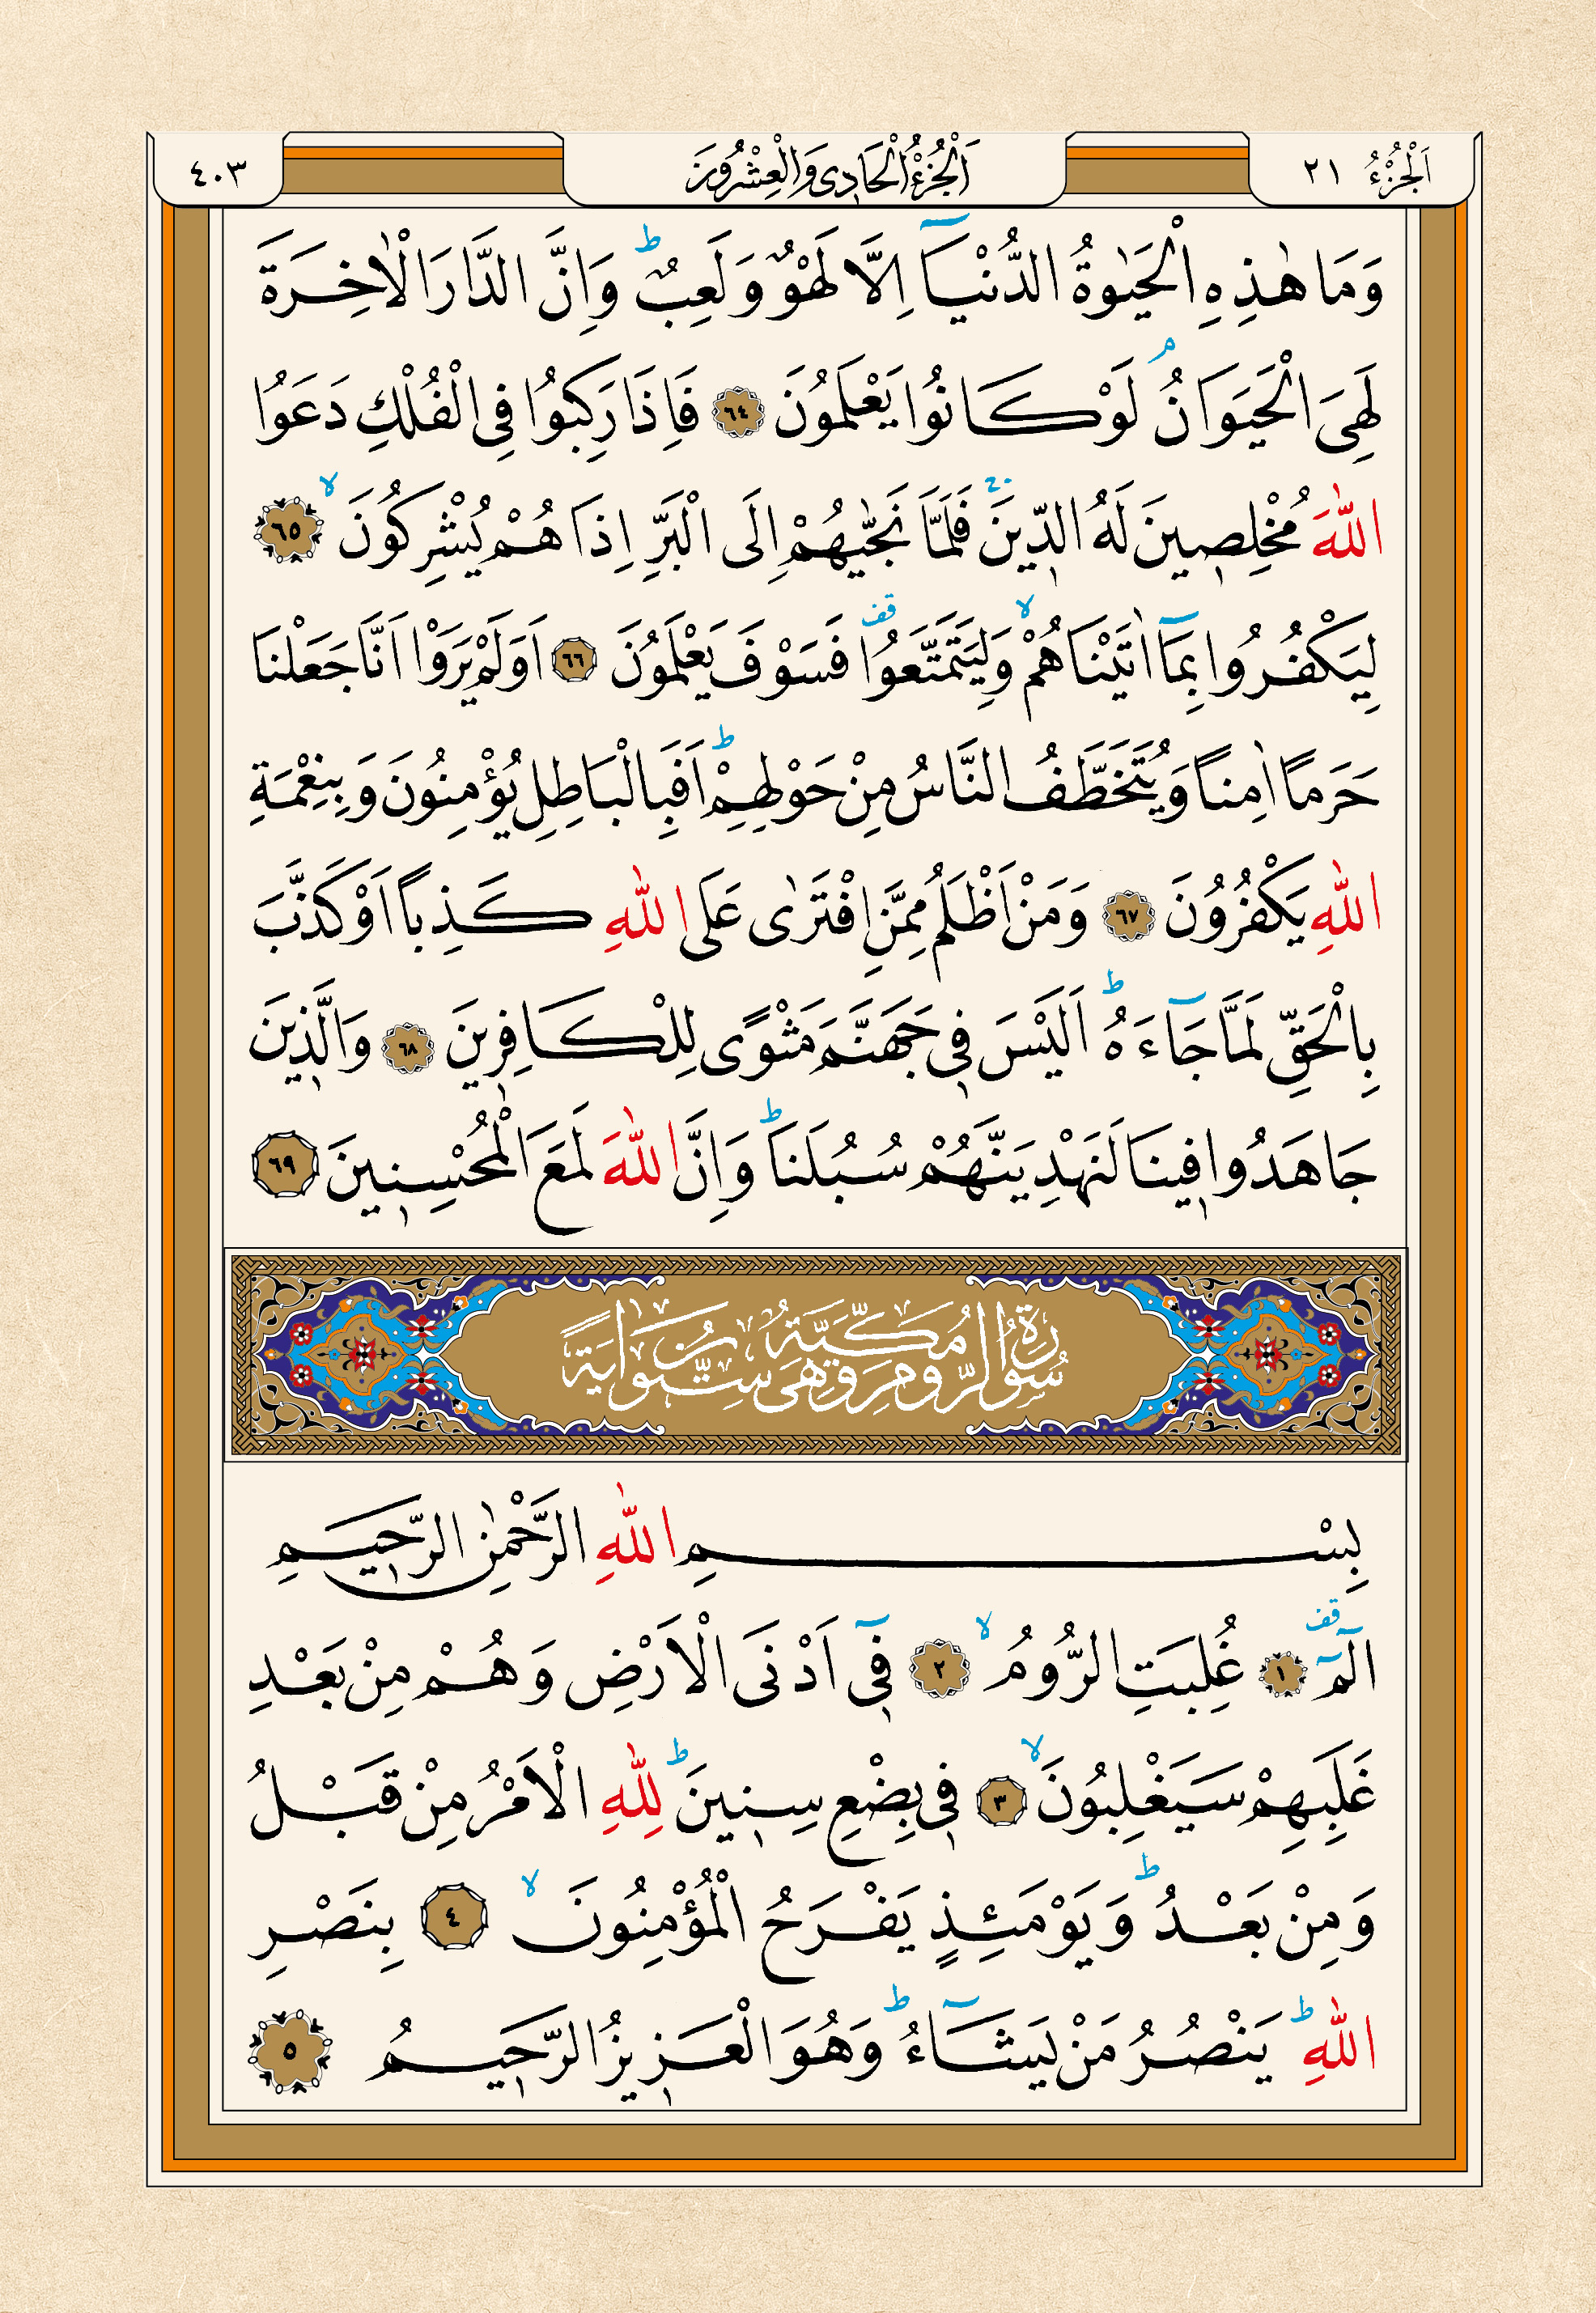 اَلْجُزْءُ ٢١
اَلْجُزْءُ الْحَادِى وَالْعِشْرُونَ
٤٠٣
وَمَا هٰذِهِ الْحَيٰوةُ الدُّنْيَٓا اِلَّا لَهْوٌ وَلَعِبٌۜ وَاِنَّ الدَّارَ الْاٰخِرَةَ
لَهِىَ الْحَيَوَانُۢ لَوْ كَانُوا يَعْلَمُونَ ﴿٦٤﴾ فَاِذَا رَكِبُوا فِى الْفُلْكِ دَعَوُا
اللّٰهَ مُخْلِصٖينَ لَهُ الدّٖينَۚ فَلَمَّا نَجّٰيهُمْ اِلَى الْبَرِّ اِذَا هُمْ يُشْرِكُونَۙ ﴿٦٥﴾
لِيَكْفُرُوا بِمَٓا اٰتَيْنَاهُمْۙ وَلِيَتَمَتَّعُوا۠ قف فَسَوْفَ يَعْلَمُونَ ﴿٦٦﴾ اَوَلَمْ يَرَوْا اَنَّا جَعَلْنَا
حَرَمًا اٰمِنًا وَيُتَخَطَّفُ النَّاسُ مِنْ حَوْلِهِمْۜ اَفَبِالْبَاطِلِ يُؤْمِنُونَ وَبِنِعْمَةِ
اللّٰهِ يَكْفُرُونَ ﴿٦٧﴾ وَمَنْ اَظْلَمُ مِمَّنِ افْتَرٰى عَلَى اللّٰهِ كَذِبًا اَوْ كَذَّبَ
بِالْحَقِّ لَمَّا جَٓاءَهُۜ اَلَيْسَ فٖى جَهَنَّمَ مَثْوًى لِلْكَافِرٖينَ ﴿٦٨﴾ وَالَّذٖينَ
جَاهَدُوا فٖينَا لَنَهْدِيَنَّهُمْ سُبُلَنَاۜ وَاِنَّ اللّٰهَ لَمَعَ الْمُحْسِنٖينَ ﴿٦٩﴾
سُورَةُ الرُّومِ مَكِّيَّةٌ وَهِىَ سِتُّونَ اٰيَةً
بِسْمِ اللّٰهِ الرَّحْمٰنِ الرَّحٖيمِ
الٓمٓ قف ﴿١﴾ غُلِبَتِ الرُّومُۙ ﴿٢﴾ فٖٓى اَدْنَى الْاَرْضِ وَهُمْ مِنْ بَعْدِ
غَلَبِهِمْ سَيَغْلِبُونَۙ ﴿٣﴾ فٖى بِضْعِ سِنٖينَۜ لِلّٰهِ الْاَمْرُ مِنْ قَبْلُ
وَمِنْ بَعْدُۜ وَيَوْمَئِذٍ يَفْرَحُ الْمُؤْمِنُونَۙ ﴿٤﴾ بِنَصْرِ
اللّٰهِۜ يَنْصُرُ مَنْ يَشَٓاءُۜ وَهُوَ الْعَزٖيزُ الرَّحٖيمُ ﴿٥﴾